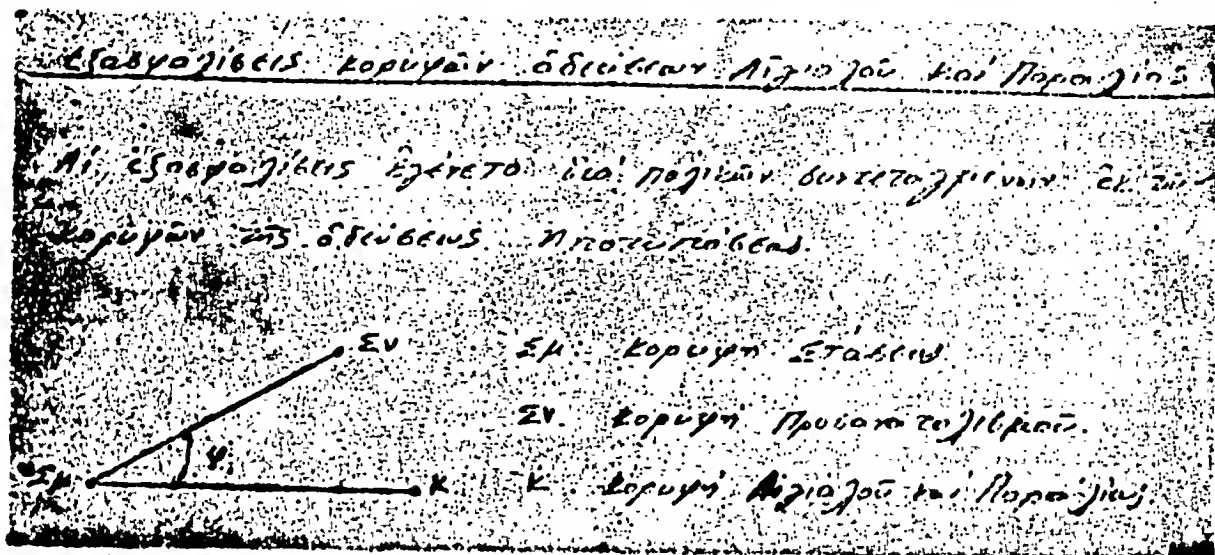 Ἐξασφαλίσεις κορυφῶν ὁδεύσεων Αἰγιαλοῦ καί Παραλίας
Αἱ ἐξασφαλίσεις ἐγένετο διά πολικῶν συντεταγμένων ἐκ τῶν
κορυφῶν τῆς ὁδεύσεως Ἀποτυπώσεως.
Σν
Σμ κορυφή Στάσεως
Σν. κορυφή Προσανατολισμοῦ.
φ
Σμ Κ Κ κορυφή Αἰγιαλοῦ καί Παραλίας